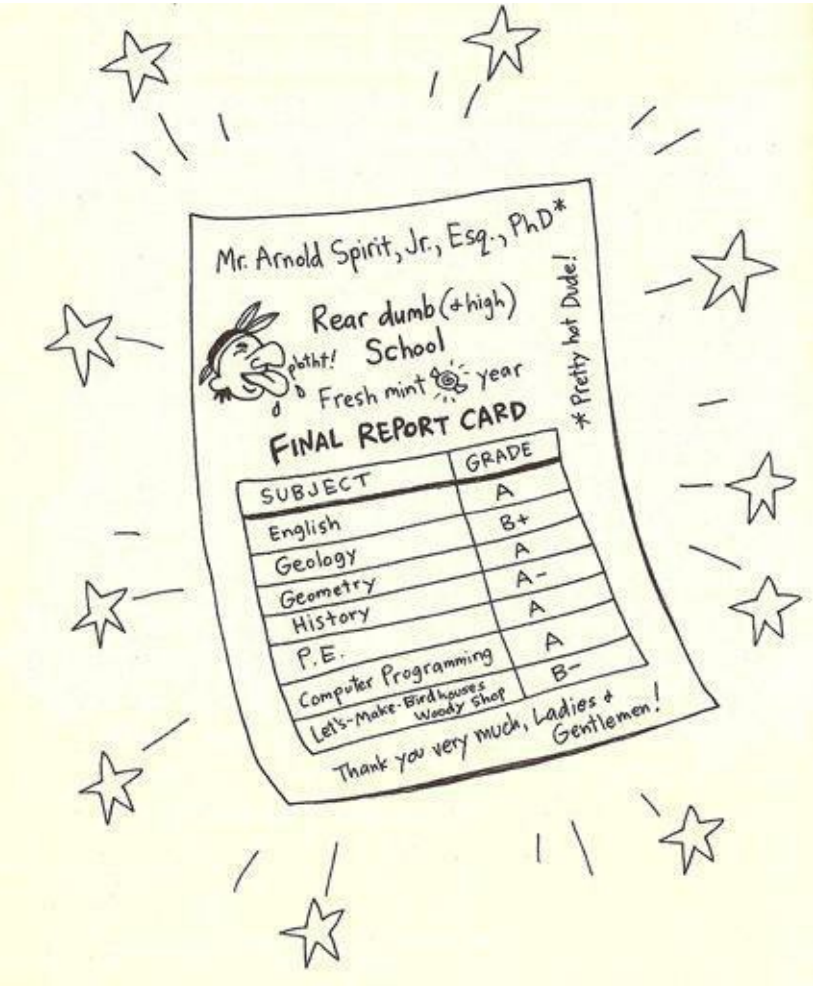 Mr. Arnold Spirit, Jr., Esq., PhD*
* Pretty hot Dude!
Rear dumb (& high)
School
pbtht!
Fresh mint year
FINAL REPORT CARD
SUBJECT GRADE
English A
Geology B+
Geometry A
History A-
P.E. A
Computer Programming A
Let's-Make-Birdhouses
Woody Shop B-
Thank you very much, Ladies &
Gentlemen!